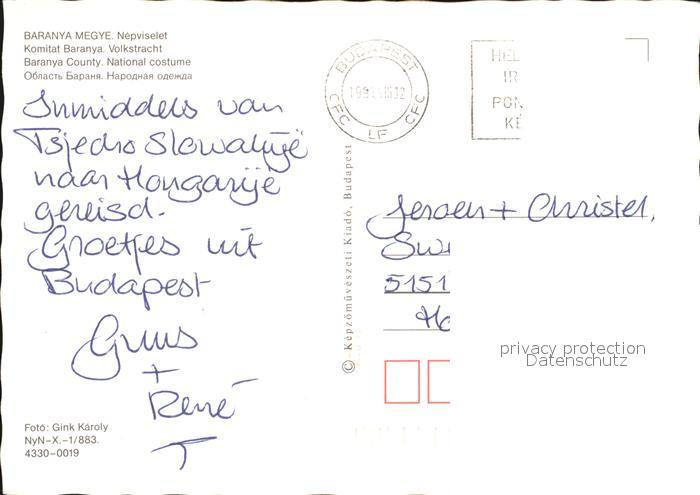 BARANYA MEGYE. Népviselet
Komitat Baranya. Volkstracht
Baranya County. National costume
Область Бараня. Народная одежда
Inmiddels van
Tsjecho Slowakije
naar Hongarije
gereisd.
Groetjes uit
Budapest
Guus
+
René
Fotó: Gink Károly
NyN–X.–1/883.
4330–0019
© Képzőművészeti Kiadó, Budapest
BUDAPEST
CFC LF CFC
HEL
IR
PON
KÉ
Jeroen + Christel,
5151
privacy protection
Datenschutz